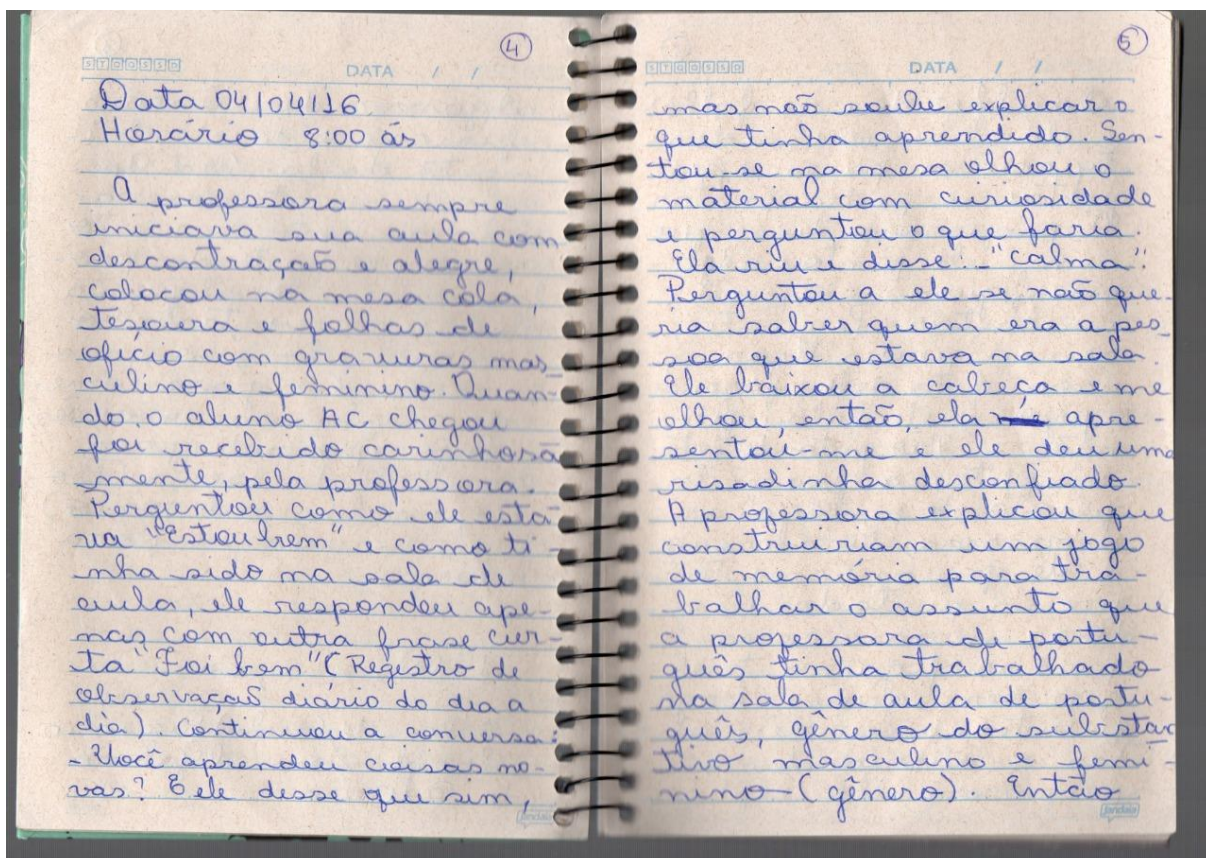 4
STQQSSD
DATA / /
Data 04/04/16
Horário 8:00 ás
A professora sempre
iniciava sua aula com
descontração e alegre,
colocou na mesa cola,
tesoura e folhas de
ofício com gravuras mas
culino e feminino. Quan-
do o aluno AC chegou
foi recebido carinhosa
mente, pela professora.
Perguntou como ele esta
va "Estou bem" e como ti-
nha sido na sala de
aula, ele respondeu ape-
nas com outra frase cur-
ta "Foi bem" (Registro de
observação diário do dia a
dia). Continuou a conversa:
- Você aprendeu coisas no-
vas? E ele disse que sim,
Jandaia
5
STQQSSD
DATA / /
mas não soube explicar o
que tinha aprendido. Sen-
tou-se na mesa olhou o
material com curiosidade
e perguntou o que faria.
Ela riu e disse: - "Calma".
Perguntou a ele se não que-
ria saber quem era a pes-
soa que estava na sala.
Ele baixou a cabeça e me
olhou, então, ela apre-
sentou-me e ele deu uma
risadinha desconfiado.
A professora explicou que
construiriam um jogo
de memória para tra-
balhar o assunto que
a professora de portu-
guês tinha trabalhado
na sala de aula de portu-
guês, gênero do substan
tivo masculino e femi-
nino (gênero). Então
Jandaia